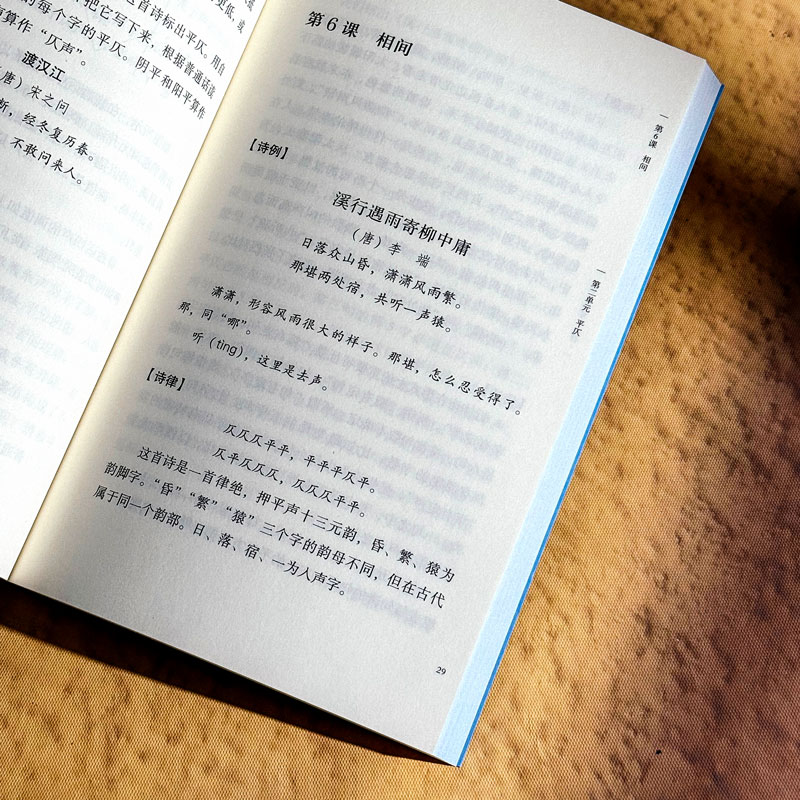 首诗标出平仄。用自
把它写下来，根据普通话读
的每个字的平仄。阴平和阳平算作
算作“仄声”。
渡汉江
（唐）宋之问
断，经冬复历春。
不敢问来人。
第6课 相间
【诗例】
溪行遇雨寄柳中庸
（唐）李 端
日落众山昏，潇潇风雨繁。
那堪两处宿，共听一声猿。
潇潇，形容风雨很大的样子。那堪，怎么忍受得了。
那，同“哪”。
听（tìng），这里是去声。
【诗律】
仄仄仄平平，平平平仄平。
仄平仄仄仄，仄仄仄平平。
这首诗是一首律绝，押平声十三元韵，昏、繁、猿为
韵脚字。“昏”“繁”“猿”三个字的韵母不同，但在古代
属于同一个韵部。日、落、宿、一为入声字。
29
第6课 相间
第二单元 平仄